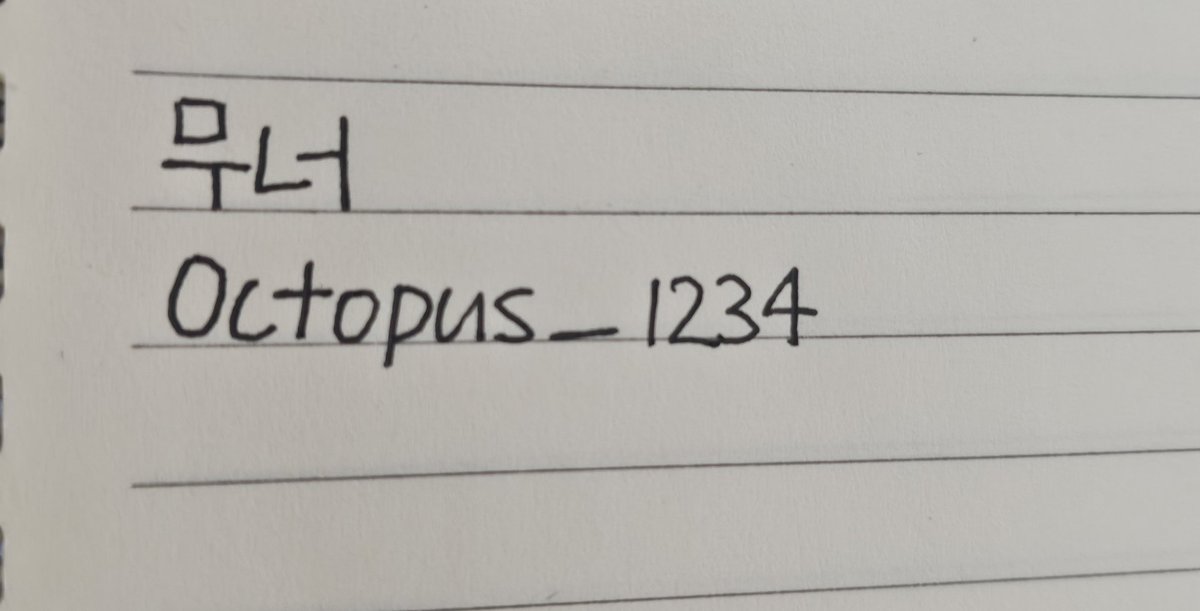 무너
Octopus_1234